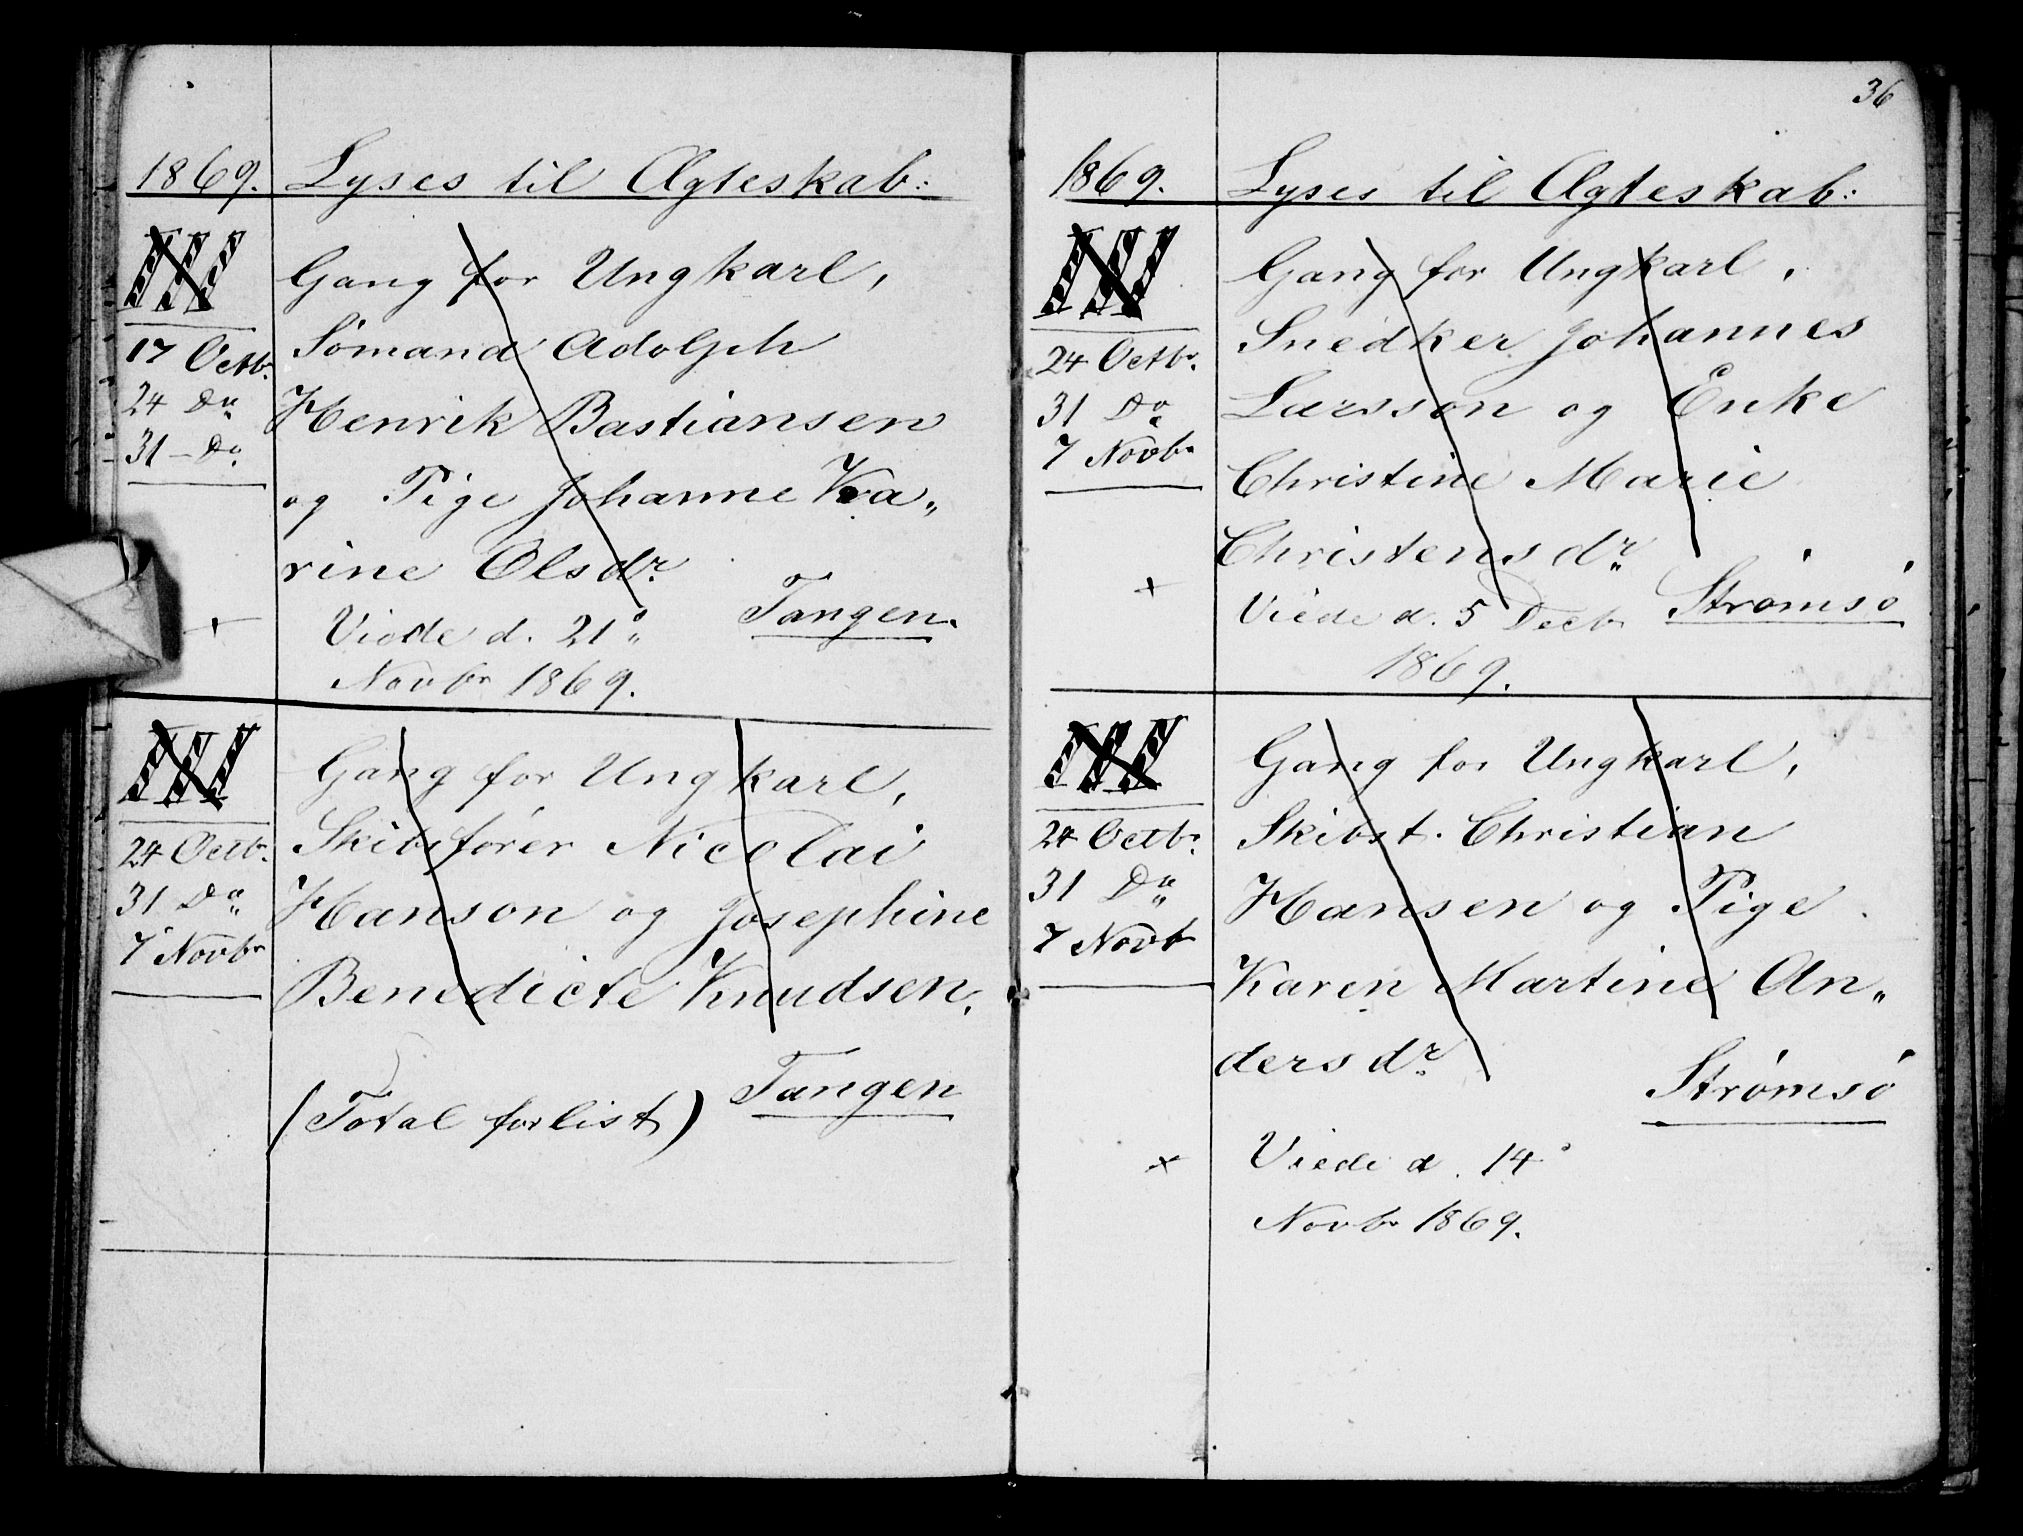 1869. Lyses til Ægteskab:
III Gang for Ungkarl,
17 Octbr. Sömand Adolph
24 Do Henrik Bastiansen
31 – Do og Pige Johanne Ka„
rine Olsdr.
+ Viede d. 21. Tangen.
Novbr 1869.
III Gang for Ungkarl,
24 Octbr. Skibsförer Nicolai
31 Do Hanson og Josephine
7 Novbr Benedicte Knudsen,
(Total forlist) Tangen
36
1869. Lyses til Ægteskab:
III Gang for Ungkarl,
24 Octbr. Snedker Johannes
31 Do Larsson og Enke
7 Novbr Christine Marie
Christensdr.
+ Viede d. 5 Decbr Strømsö
1869.
III Gang for Ungkarl,
24 Octbr. Skibst. Christian
31 Do Hansen og Pige
7 Novbr Karen Martine An„
dersdr.
Strømsö
+ Viede d. 14
Novbr 1869.